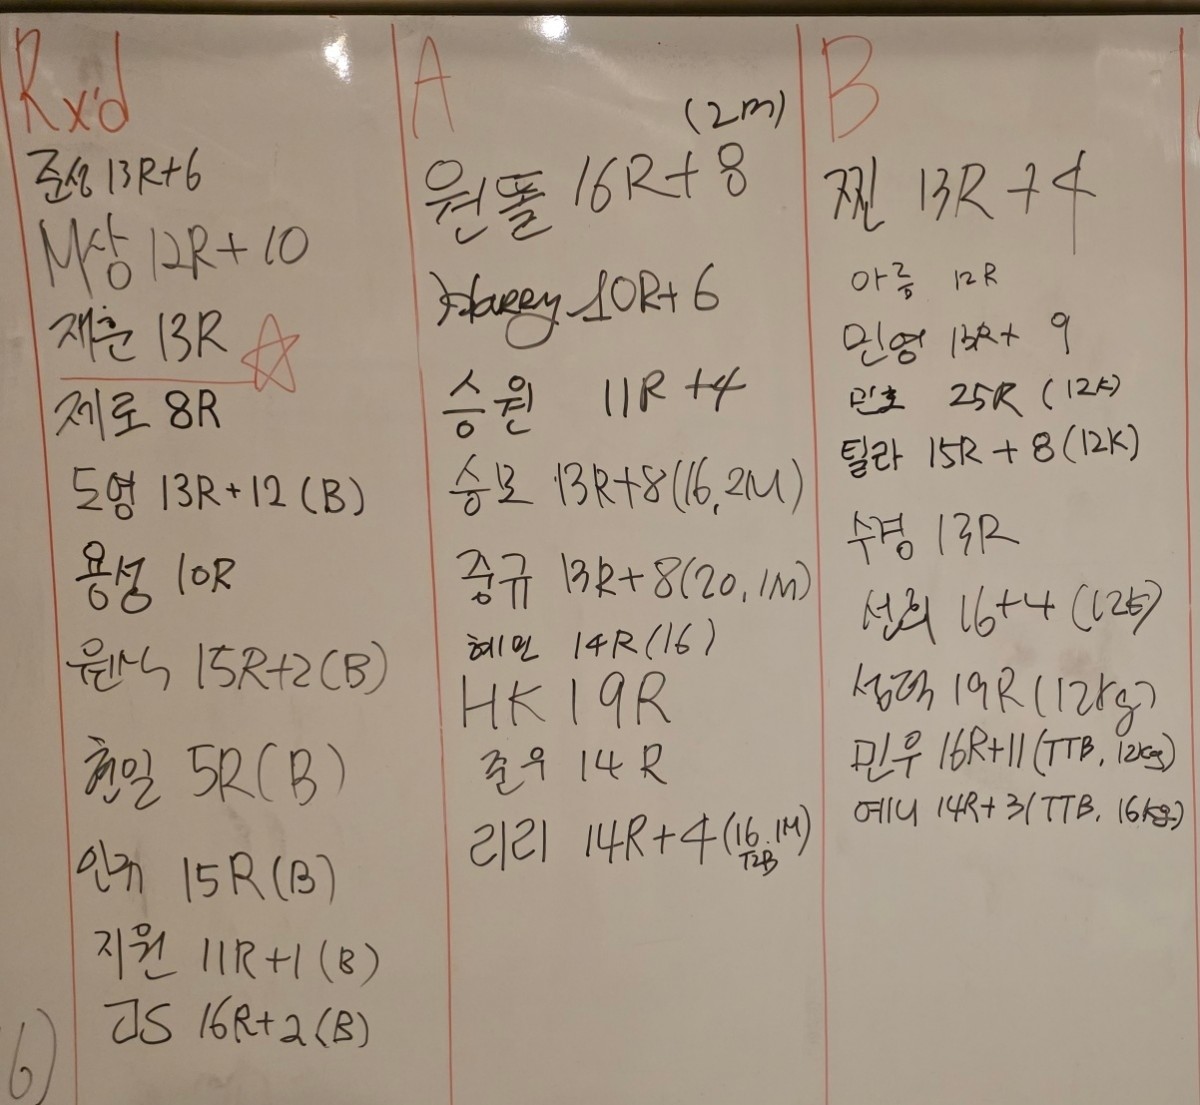 Rx'd
준성 13R+6
M상 12R+10
재훈 13R
제로 8R
도영 13R+12 (B)
용성 10R
원식 15R+2(B)
현일 5R(B)
15R(B)
지원 11R+1 (B)
JS 16R+2 (B)
6)
A
(2m)
원똘 16R+8
Harry 10R+6
승원 11R+4
승모 13R+8(16, 2M)
중규 13R+8(20, 1M)
혜민 14R(16)
HK 19R
준우 14R
리리 14R+4(16, 1M)
T2B
B
찐 13R+4
아름 12R
민영 13R+ 9
민호 25R (12K)
틸라 15R+8(12K)
수경 13R
선희 16+4 (12K)
성덕 19R(12kg)
민우 16R+11(TTB, 12kg)
예니 14R+3(TTB, 16kg)